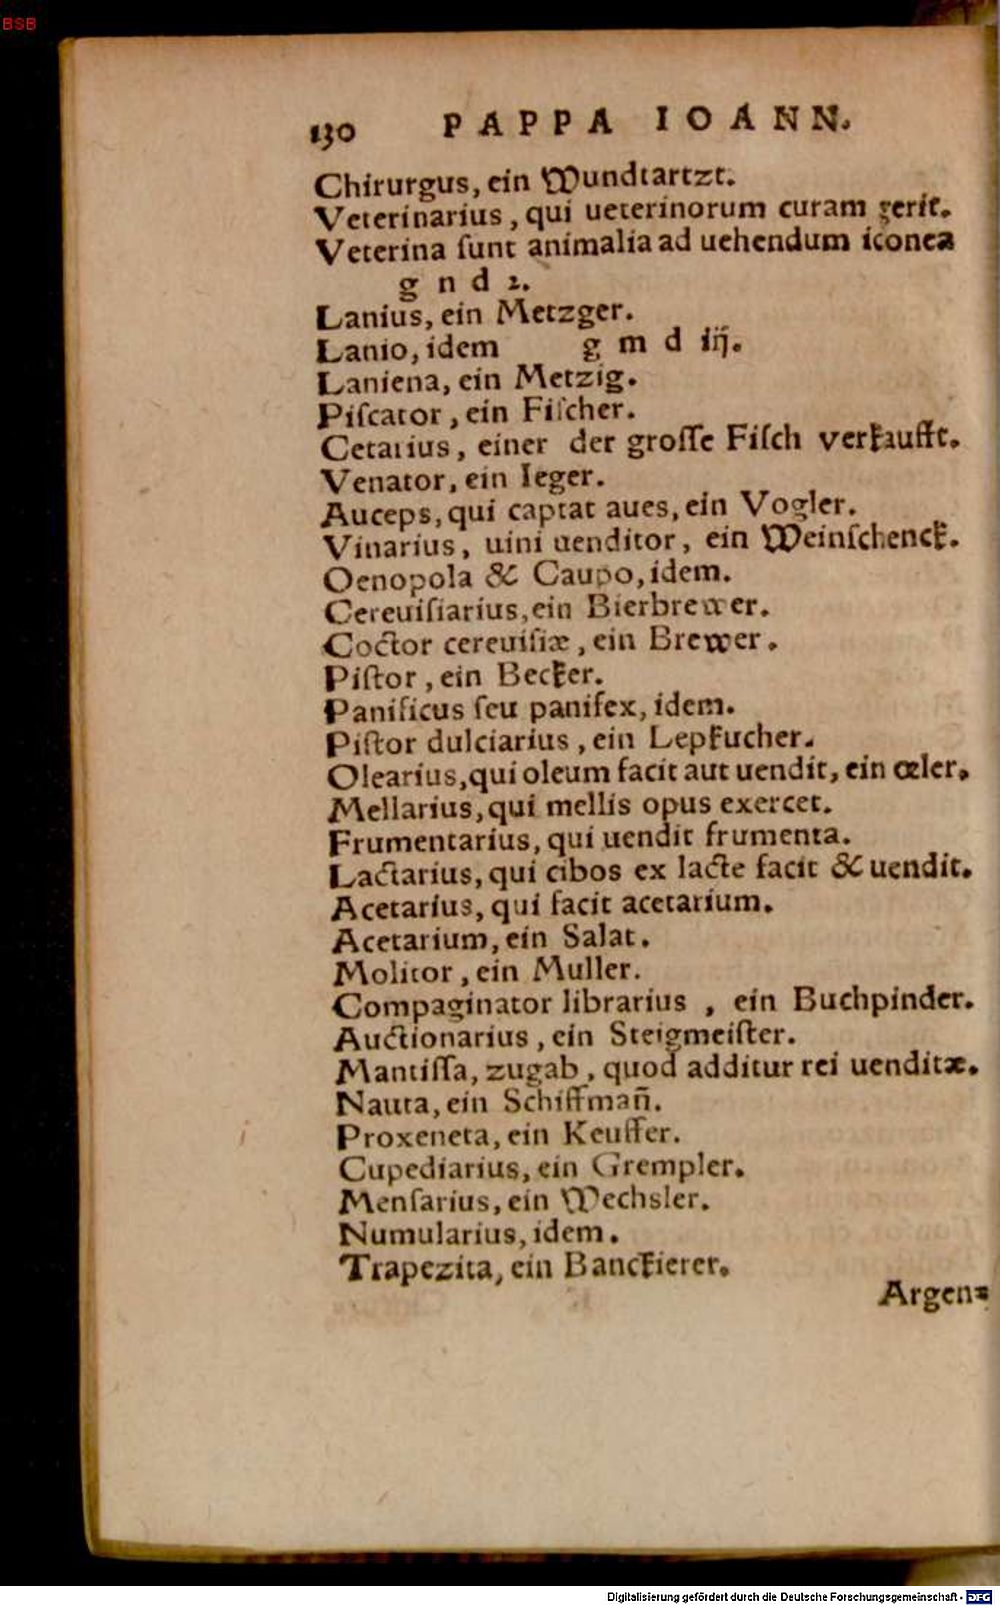 BSB
130 PAPPA IOANN.
Chirurgus, ein Wundtartzt.
Veterinarius, qui ueterinorum curam gerit.
Veterina ſunt animalia ad uehendum iconea
g n d 2.
Lanius, ein Metzger.
Lanio, idem g m d iij.
Laniena, ein Metzig.
Piſcator, ein Fiſcher.
Cetarius, einer der groſſe Fiſch verkaufft.
Venator, ein Ieger.
Auceps, qui captat aues, ein Vogler.
Vinarius, uini uenditor, ein Weinſchenck.
Oenopola & Caupo, idem.
Cereuiſiarius, ein Bierbrewer.
Coctor cereuiſiæ, ein Brewer.
Piſtor, ein Becker.
Panificus ſeu panifex, idem.
Piſtor dulciarius, ein Lepkucher.
Olearius, qui oleum facit aut uendit, ein œler.
Mellarius, qui mellis opus exercet.
Frumentarius, qui uendit frumenta.
Lactarius, qui cibos ex lacte facit & uendit.
Acetarius, qui facit acetarium.
Acetarium, ein Salat.
Molitor, ein Muller.
Compaginator librarius, ein Buchpinder.
Auctionarius, ein Steigmeiſter.
Mantiſſa, zugab, quod additur rei uenditæ.
Nauta, ein Schiffmañ.
Proxeneta, ein Keuffer.
Cupediarius, ein Grempler.
Menſarius, ein Wechsler.
Numularius, idem.
Trapezita, ein Banckierer.
Argen=
Digitalisierung gefördert durch die Deutsche Forschungsgemeinschaft - DFG